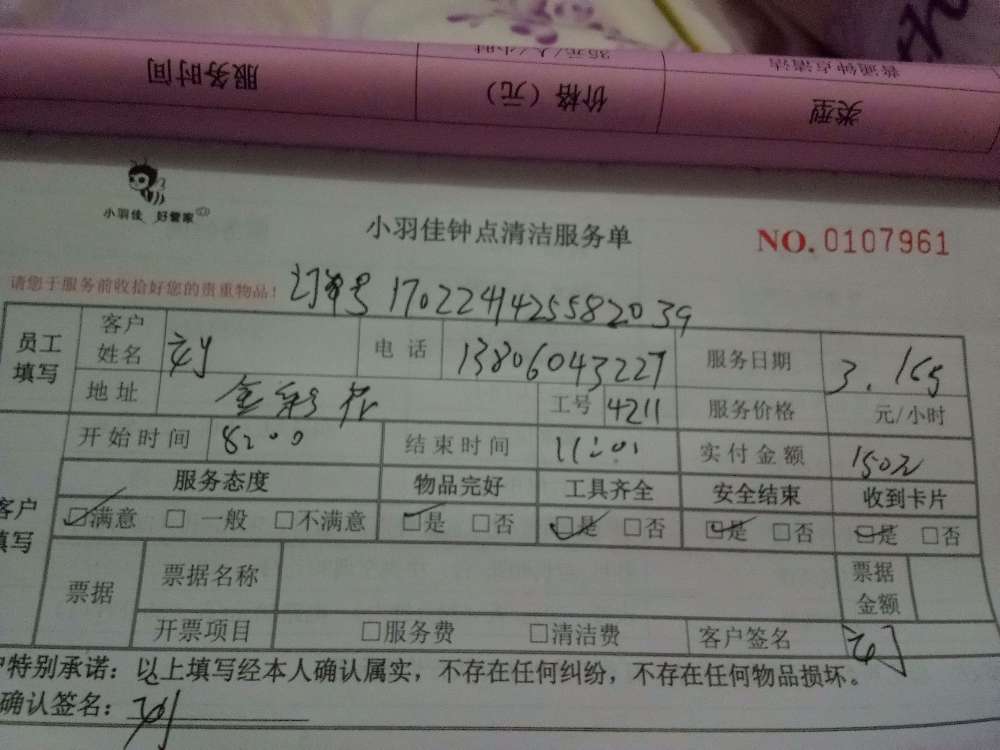 普通钟点清洁 35元/人/小时
类型 价格（元） 服务时间
小羽佳 好管家
小羽佳钟点清洁服务单 NO.0107961
请您于服务前收拾好您的贵重物品！ 订单号 17022414255582039
员工填写 客户姓名 电话 13806043227 服务日期 3.16号
地址 工号 4211 服务价格 元/小时
开始时间 8:00 结束时间 11:01 实付金额 150元
客户填写 服务态度 物品完好 工具齐全 安全结束 收到卡片
☑满意 □一般 □不满意 ☑是 □否 ☑是 □否 ☑是 □否 ☑是 □否
票据 票据名称 票据金额
开票项目 □服务费 □清洁费 客户签名
户特别承诺：以上填写经本人确认属实，不存在任何纠纷，不存在任何物品损坏。
确认签名：